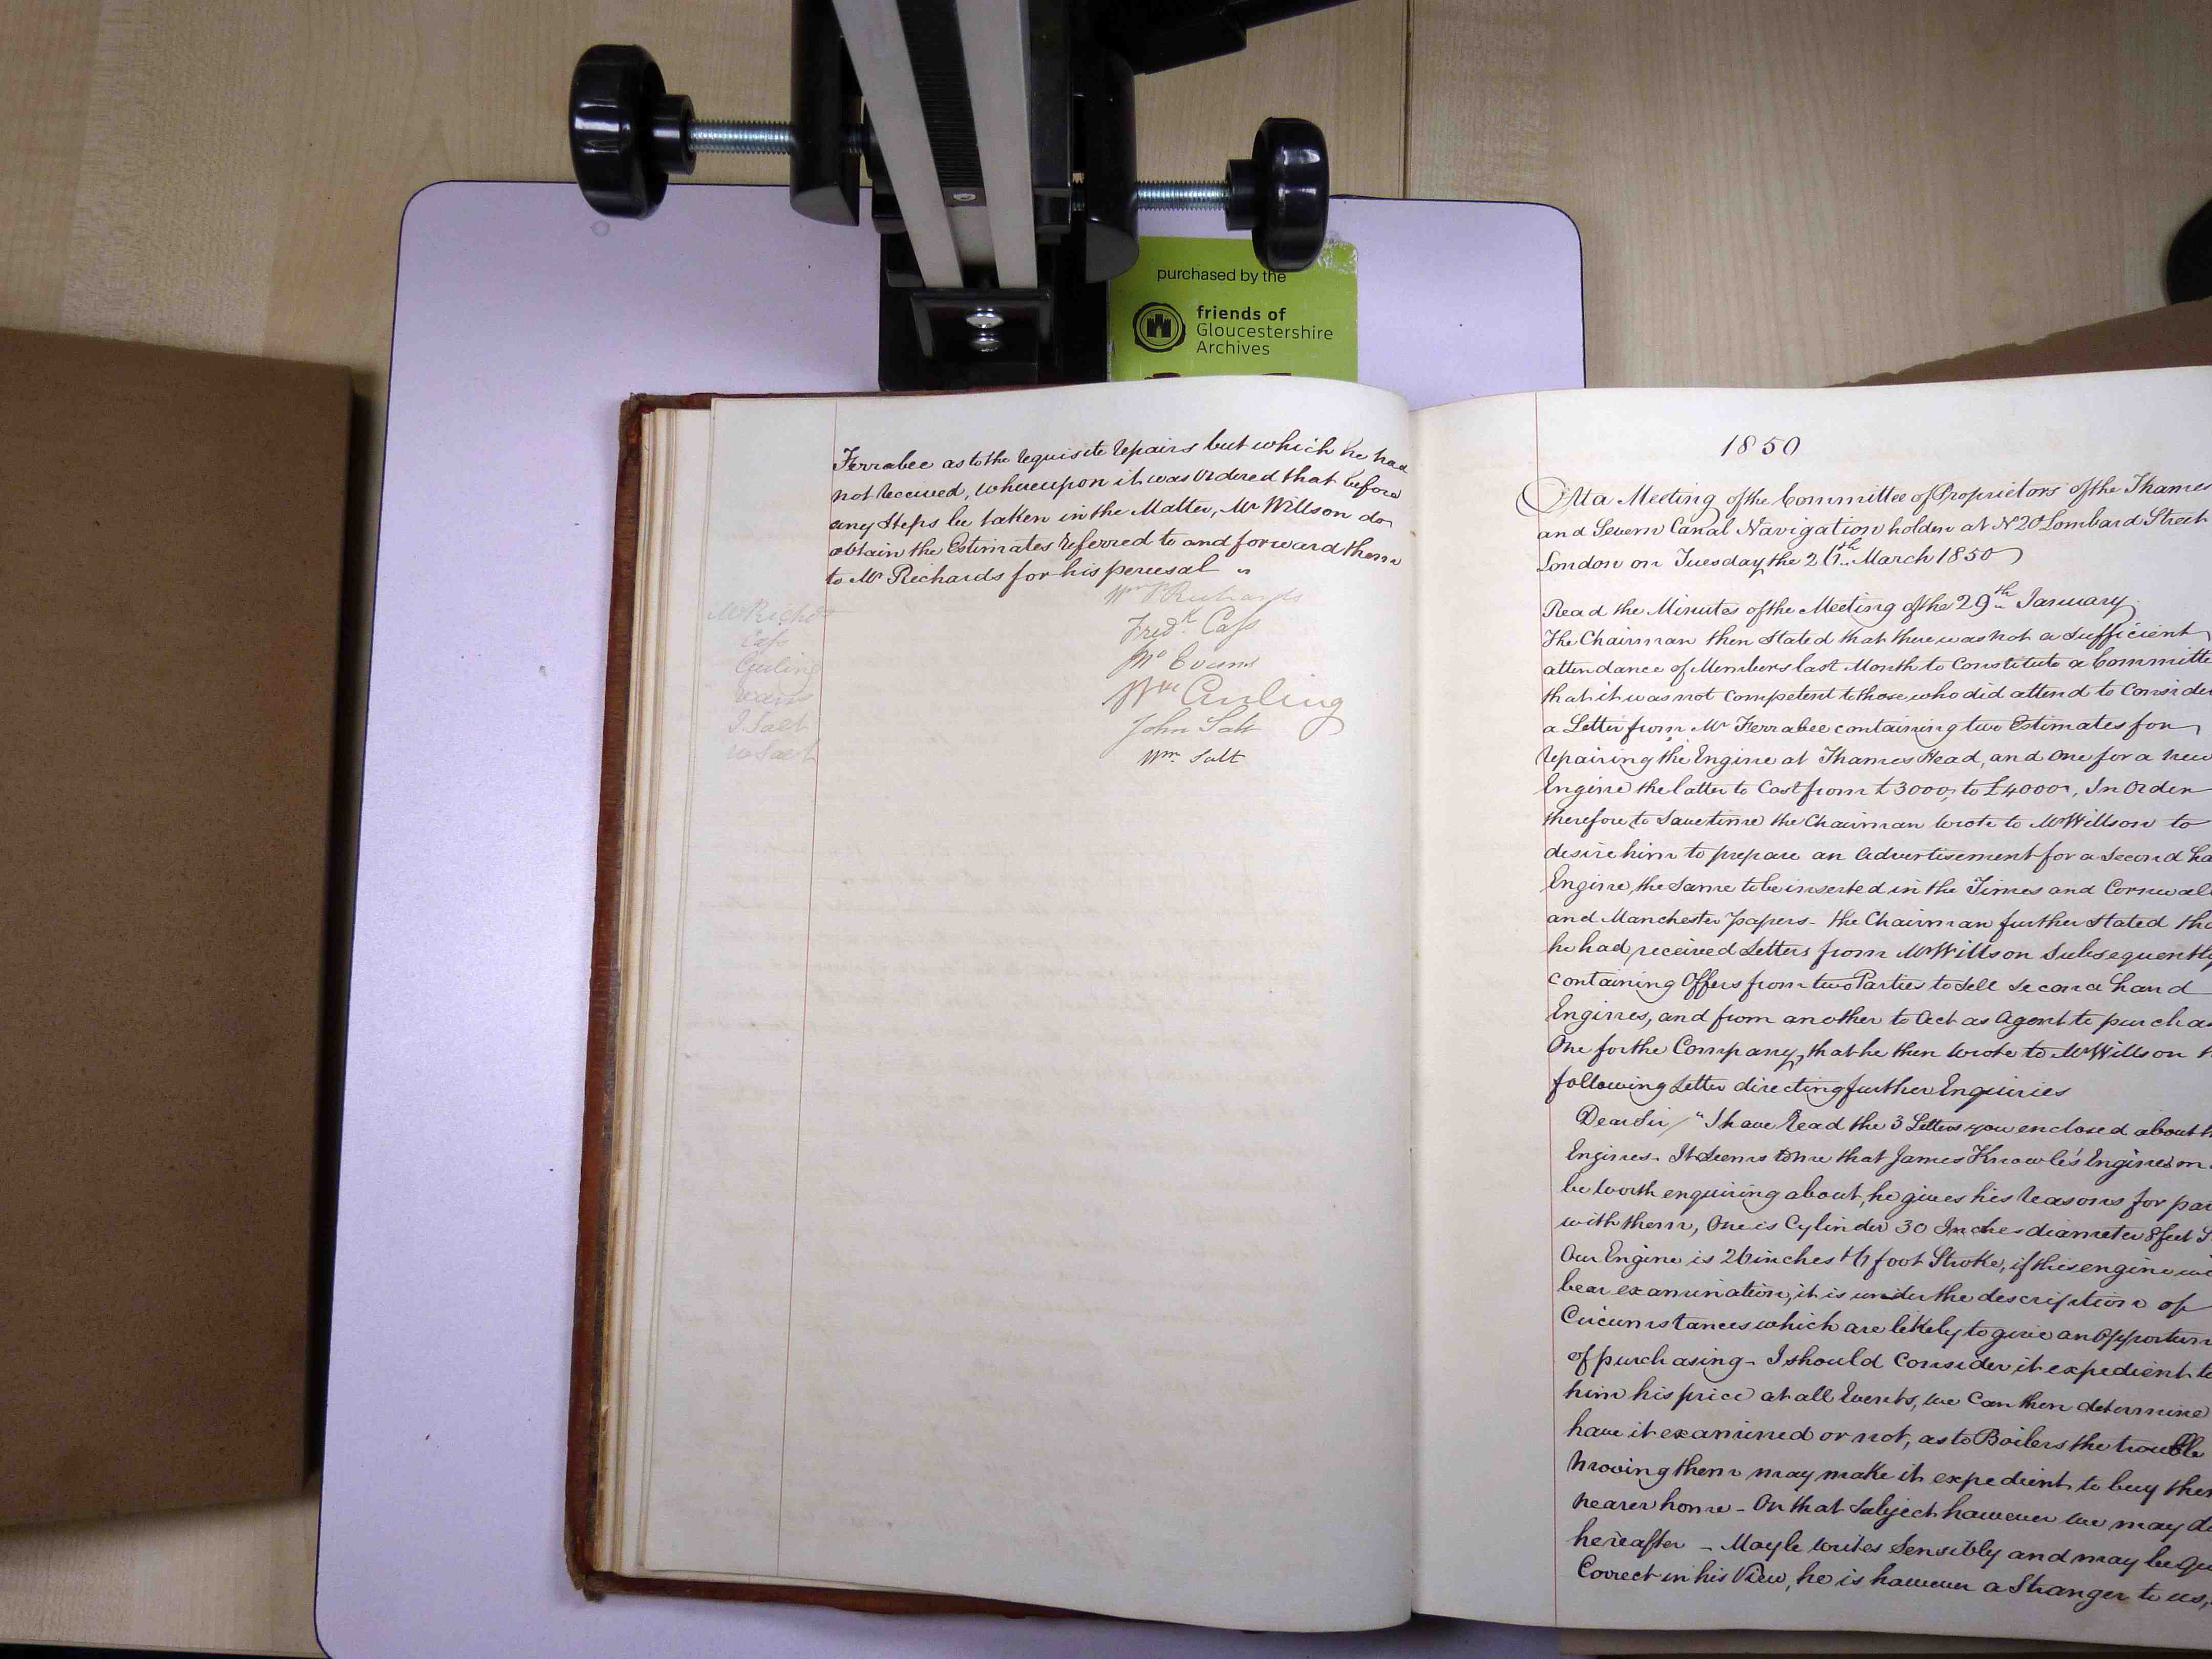 purchased by the
friends of
Gloucestershire
Archives
Ferrabee as to the requisite repairs but which he had
not received, whereupon it was Ordered that before
any Steps be taken in the Matter, Mr Willson do
obtain the Estimates referred to and forward them
to Mr Richards for his perusal "
Wm P Richards
Fredk. Cass
Evans
Wm Curling
John Salt
Wm. Salt
Mr Richds
Cass
Curling
Evans
J. Salt
W Salt
1850
At a Meeting of the Committee of Proprietors of the Thames
and Severn Canal Navigation holden at No 20 Lombard Street
London on Tuesday the 26th. March 1850
Read the Minutes of the Meeting of the 29th January
The Chairman then Stated that there was not a Sufficient
attendance of Members last Month to Constitute a Committe
that it was not Competent to those who did attend to Conside
a Letter from Mr Ferrabee containing two Estimates for
repairing the Engine at Thames Head, and One for a new
Engine the latter to Cost from £3000, to £4000, In Order
therefore to Save time the Chairman wrote to Mr Willson to
desire him to prepare an Advertisement for a Second ha
Engine, the Same to be inserted in the Times and Cornwall
and Manchester Papers - the Chairman further Stated tha
he had received Letters from Mr Willson Subsequently
containing Offers from two Parties to Sell Second hand
Engines, and from another to Act as Agent to purcha
One for the Company, that he then wrote to Mr Willson t
following Letter directing further Enquiries
Dear Sir / "I have read the 3 Letters you enclosed about th
Engines - It Seems to me that James Knowle's Engines m
be worth enquiring about, he gives his reasons for par
with them, One is Cylinder 30 Inches diameter 8 feet S
Our Engine is 26 inches & 6 foot Stroke, if this engine wi
bear examination, it is under the description of
Circumstances which are likely to give an Opportun
of purchasing - I should Consider it expedient to
him his price at all Events, we Can then determine
have it examined or not, as to Boilers the trouble
moving them may make it expedient to buy them
nearer home - On that Subject however we may de
hereafter - Mayle writes Sensibly and may be qu
Correct in his View, he is however a Stranger to us,